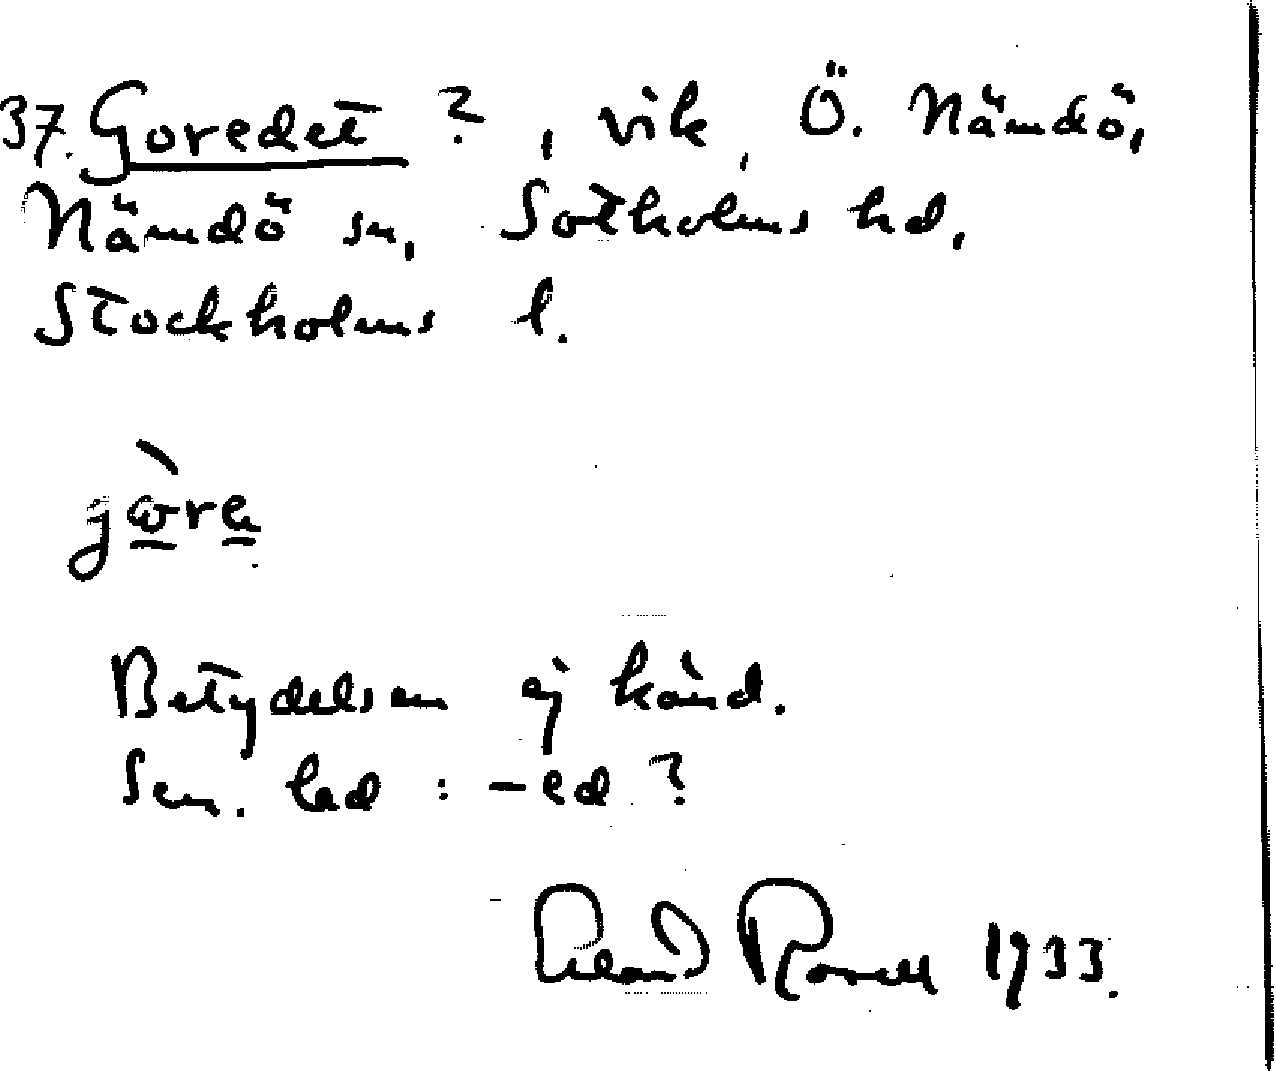 37. Goredet ?, vik, Ö. Nämdö,
Nämdö sn, Sotholms hd,
Stockholms l.
Betydelsen ej känd.
Sen. led : -ed ?
Erland Rosell 1933.